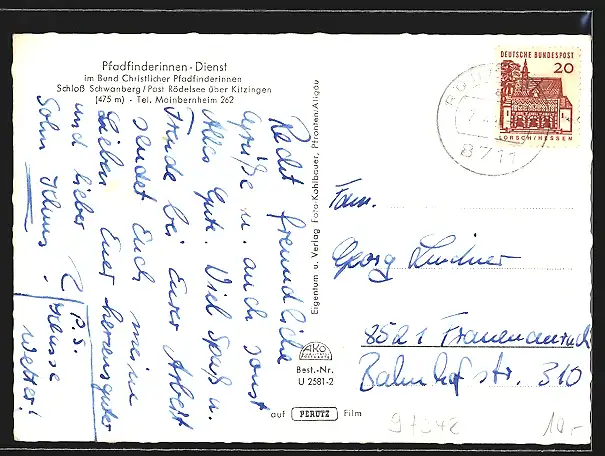 Pfadfinderinnen-Dienst
im Bund Christlicher Pfadfinderinnen
Schloß Schwanberg/Post Rödelsee über Kitzingen
(475 m) - Tel. Mainbernheim 262
Recht freundliche
Grüße u. auch sonst
Alles Gute. Viel Spaß u.
Freude bei Eurer Arbeit
sendet Euch meine
Lieben Euer herzensguter
und lieber
Sohn
P.S.
Wetter!
Eigentum u. Verlag Foto-Kohlbauer, Pfronten/Allgäu
AKO
Best.-Nr.
U 2581-2
auf PERUTZ Film
DEUTSCHE BUNDESPOST
20
LORSCH/HESSEN
8711
Fam.
Georg Lindner
8521 Frauenaurach
Bahnhofstr. 310
97342
10,-